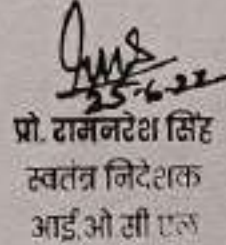 25-6-22
प्रो. रामनरेश सिंह
स्वतंत्र निदेशक
आई.ओ सी एल